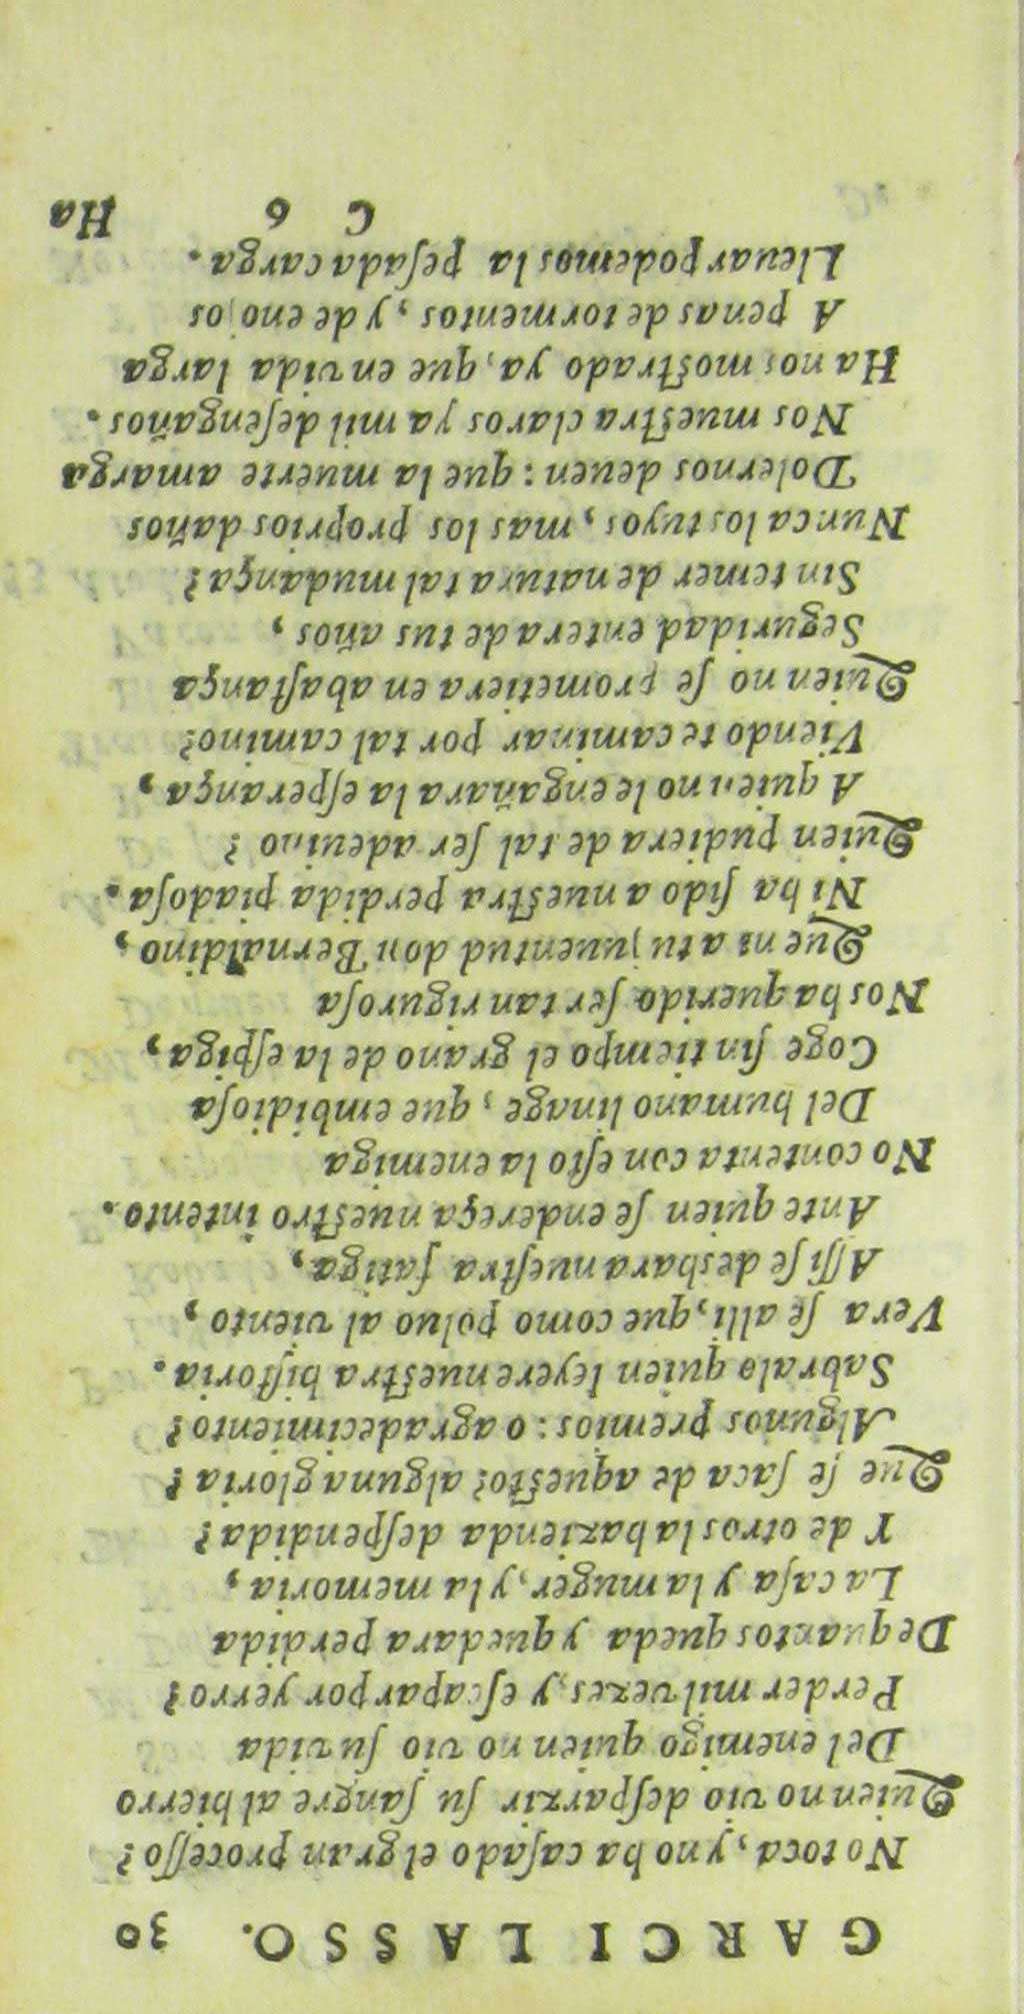 GARCI LASSO. 30
No toca, y no ha casado el gran processo?
Quien no vio desparzir su sangre al hierro
Del enemigo quien no vio su vida
Perder mil vezes, y escapar por yerro?
De quantos queda y quedara perdida
La casa y la muger, y la memoria,
Y de otros la hazienda despendida?
Que se saca de aquesto? alguna gloria?
Algunos premios: o agradecimiento?
Sabralo quien leyere nuestra historia.
Vera se alli, que como poluo al viento,
Assi se deshara nuestra fatiga,
Ante quien se endereça nuestro intento.
No contenta con esto la enemiga
Del humano linage, que embidiosa
Coge sin tiempo el grano de la espiga,
Nos ha querido ser tan rigurosa
Que ni a tu juuentud don Bernaldino,
Ni ha sido a nuestra perdida piadosa.
Quien pudiera de tal ser adeuino?
A quien no le engañara la esperança,
Viendo te caminar por tal camino?
Quien no se prometiera en abastança
Seguridad entera de tus años,
Sin temer de natura tal mudança?
Nunca los tuyos, mas los proprios daños
Dolernos deuen: que la muerte amarga
Nos muestra claros ya mil desengaños.
Ha nos mostrado ya, que en vida larga
A penas de tormentos, y de enojos
Lleuar podemos la pesada carga.
C 6 Ha